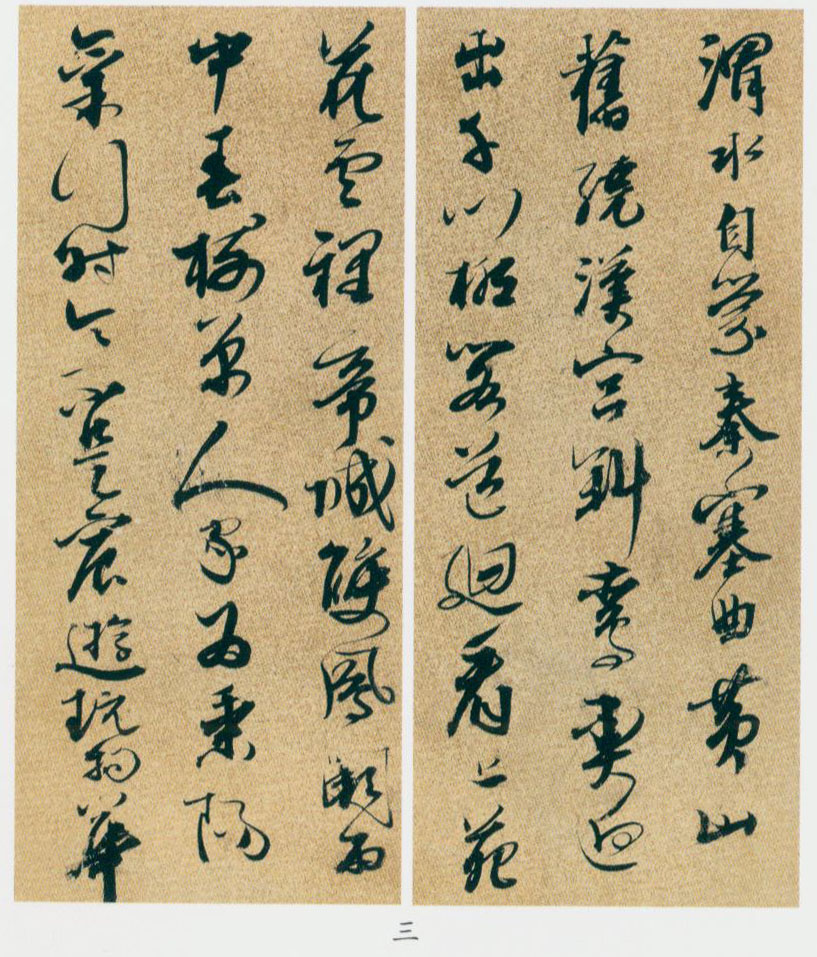 渭水自縈秦塞曲黃山
舊繞漢宮斜鸞輿迥
出千門柳閣道迴看上苑
花雲裡帝城雙鳳闕雨
中春樹萬人家為乘陽
氣行時令不是宸遊玩物華
三